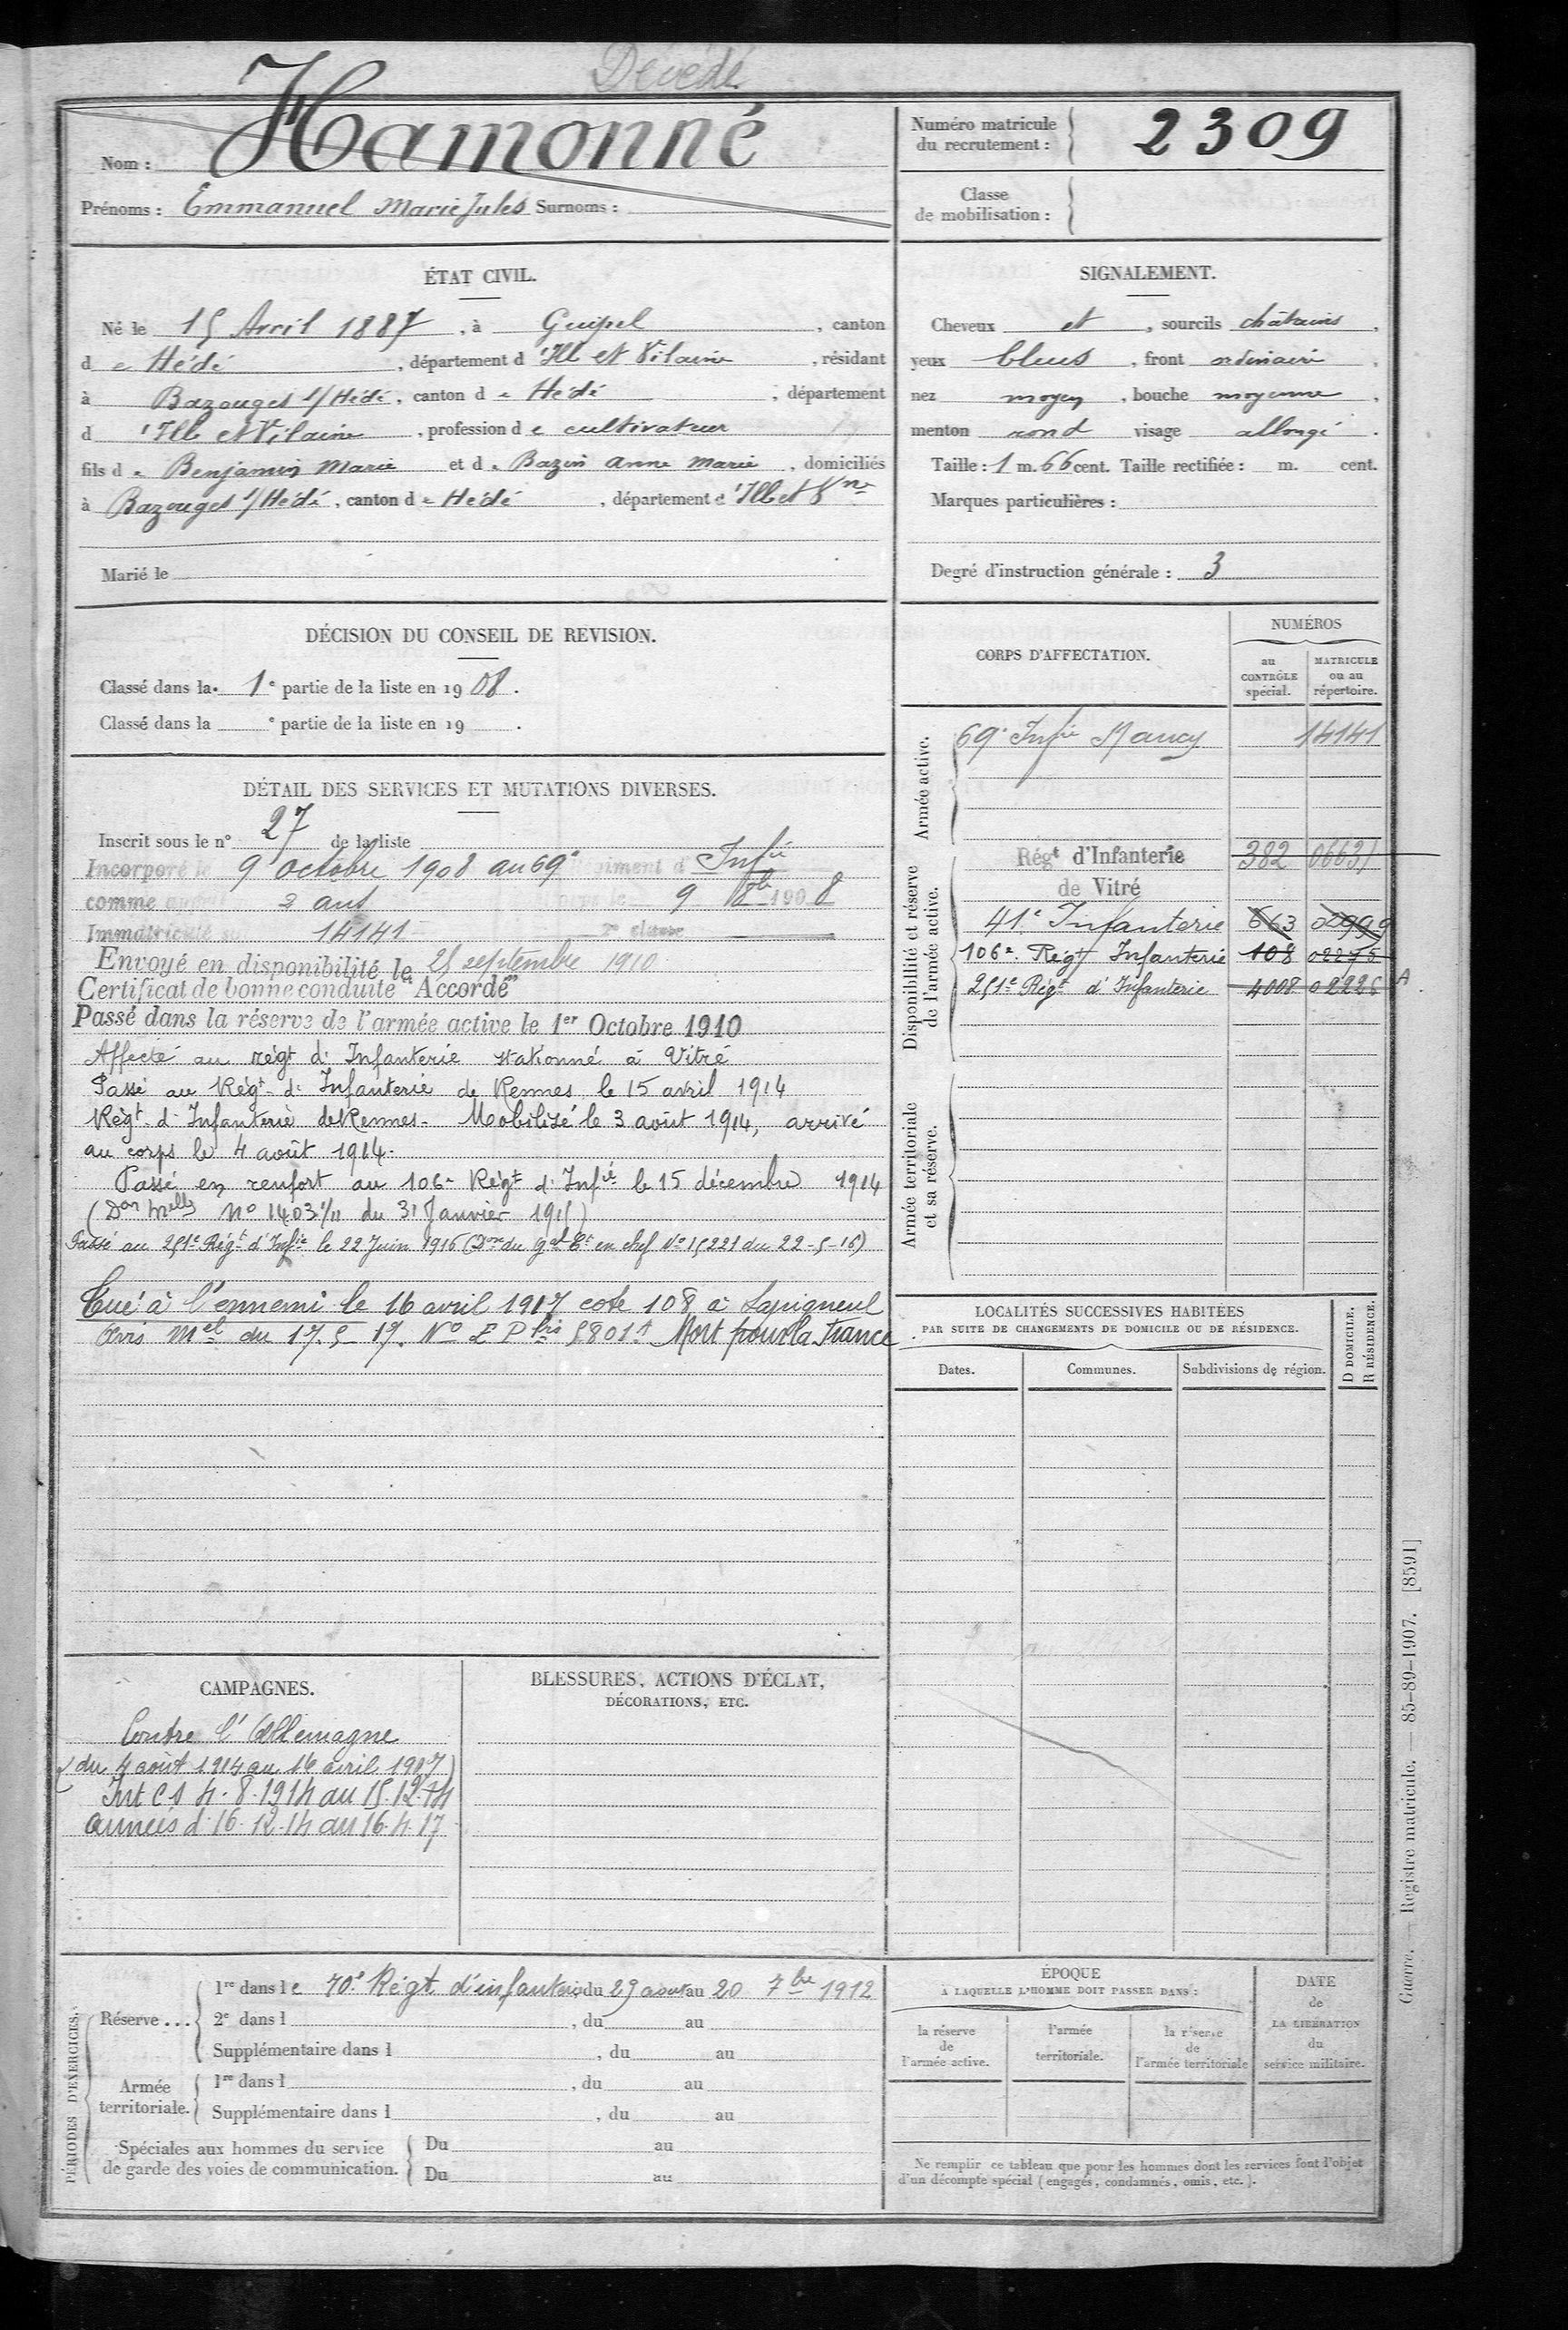 Décédé
Nom : Hamonné
Prénoms : Emmanuel Marie Jules Surnoms :
Numéro matricule du recrutement : 2309
Classe de mobilisation :
ÉTAT CIVIL.
Né le 15 Avril 1887, à Guipel, canton
de Hédé, département d'Ille et Vilaine, résidant
à Bazouges s/Hédé, canton de Hédé, département
d'Ille et Vilaine, profession de cultivateur
fils de Benjamin Marie et de Bazin Anne Marie, domiciliés
à Bazouges s/Hédé, canton de Hédé, département d'Ille et Vne
Marié le
SIGNALEMENT.
Cheveux et, sourcils châtains,
yeux bleus, front ordinaire,
nez moyen, bouche moyenne,
menton rond visage allongé.
Taille : 1 m. 66 cent. Taille rectifiée : m. cent.
Marques particulières :
Degré d'instruction générale : 3
DÉCISION DU CONSEIL DE REVISION.
Classé dans la 1e partie de la liste en 1908.
Classé dans la e partie de la liste en 19 .
DÉTAIL DES SERVICES ET MUTATIONS DIVERSES.
Inscrit sous le n° 27 de la liste
Incorporé le 9 octobre 1908 au 69e régiment d'Infie
comme 9 8bre 1908
Immatriculé 14141 2e classe
Envoyé en disponibilité le 25 septembre 1910
Certificat de bonne conduite "Accordé"
Passé dans la réserve de l'armée active le 1er Octobre 1910
Affecté au régt d'Infanterie stationné à Vitré
Passé au Régt d'Infanterie de Rennes le 15 avril 1914
Régt d'Infanterie de Rennes - Mobilisé le 3 août 1914, arrivé
au corps le 4 août 1914.
Passé en renfort au 106e Régt d'Infie le 15 décembre 1914
(Don Mlle No 1403 1/11 du 31 Janvier 1915)
Passé au 251e Régt d'Infie le 22 Juin 1916 (Don du gal Ct en chef No 15221 du 22-5-16)
Tué à l'ennemi le 16 avril 1917 cote 108 à Sapigneul
Avis Mel du 17.5.17. No E Plis 5801A Mort pour la France
CORPS D'AFFECTATION.
NUMÉROS
au CONTRÔLE spécial.
MATRICULE ou au répertoire.
Armée active.
69e Infie Nancy 14141
Disponibilité et réserve de l'armée active.
Régt d'Infanterie 382 06631
de Vitré
41e Infanterie 663 02999
106e Régt Infanterie 108 02275
251e Régt d'Infanterie 4008 02226 A
Armée territoriale et sa réserve.
LOCALITÉS SUCCESSIVES HABITÉES
PAR SUITE DE CHANGEMENTS DE DOMICILE OU DE RÉSIDENCE.
Dates. Communes. Subdivisions de région.
D DOMICILE.
R RÉSIDENCE.
CAMPAGNES.
Contre l'Allemagne
(du 4 août 1914 au 16 avril 1917)
Int C S 4.8.1914 au 15.12.14
Armées d. 16.12.14 au 16.4.17
BLESSURES, ACTIONS D'ÉCLAT,
DÉCORATIONS, ETC.
PÉRIODES D'EXERCICES.
Réserve...
1re dans le 70e Régt d'infanterie du 29 aout au 20 7bre 1912
2e dans l , du au
Supplémentaire dans l , du au
Armée territoriale.
1re dans l , du au
Supplémentaire dans l , du au
Spéciales aux hommes du service
de garde des voies de communication.
Du au
Du au
ÉPOQUE
À LAQUELLE L'HOMME DOIT PASSER DANS :
la réserve de l'armée active.
l'armée territoriale.
la réserve de l'armée territoriale
DATE de LA LIBÉRATION du service militaire.
Ne remplir ce tableau que pour les hommes dont les services font l'objet
d'un décompte spécial (engagés, condamnés, omis, etc.).
Guerre. — Registre matricule. — 85-89-1907. [8591]